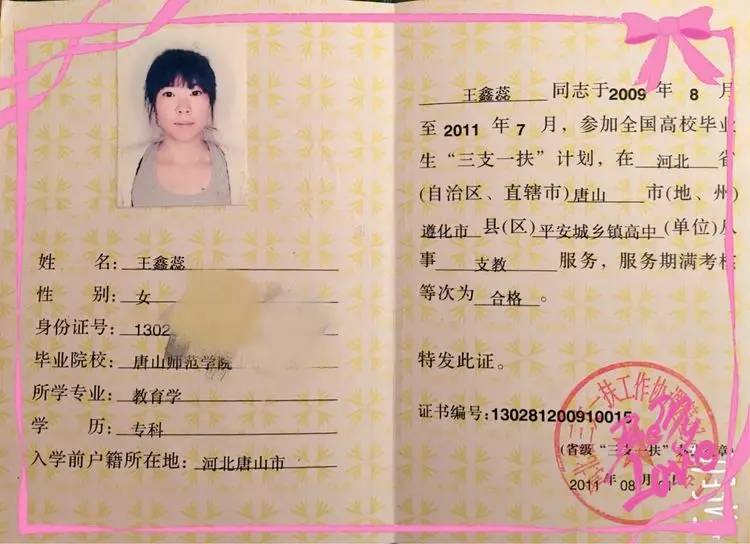 姓 名：王鑫蕊
性 别：女
身份证号：1302
毕业院校：唐山师范学院
所学专业：教育学
学 历：专科
入学前户籍所在地：河北唐山市
王鑫蕊 同志于2009 年 8 月
至 2011 年 7 月，参加全国高校毕业
生“三支一扶”计划，在 河北 省
(自治区、直辖市)唐山 市(地、州)
遵化市 县(区) 平安城乡镇高中 (单位)从
事 支教 服务，服务期满考核
等次为 合格 。
特发此证。
证书编号：13028120091001
一扶工作协调
(省级“三支一扶”
2011 年 08 月
The
My
Love